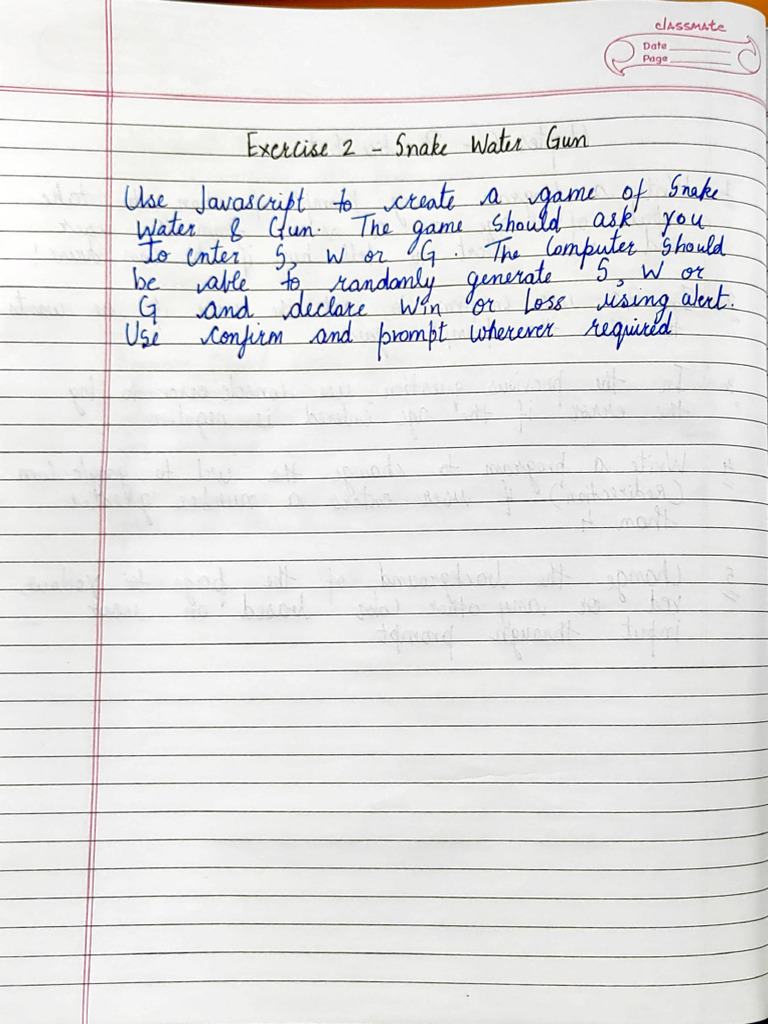 classmate
Date
Page
Exercise 2 - Snake Water Gun
Use Javascript to create a game of Snake
Water & Gun. The game should ask you
to enter S, W or G. The computer should
be able to randomly generate S, W or
G and declare Win or Loss using alert.
Use confirm and prompt wherever required